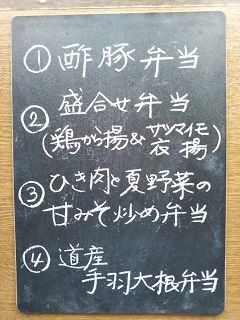 ① 酢豚弁当
② 盛合せ弁当
(鶏から揚&サツマイモ衣揚)
③ ひき肉と夏野菜の
甘みそ炒め弁当
④ 道産
手羽大根弁当